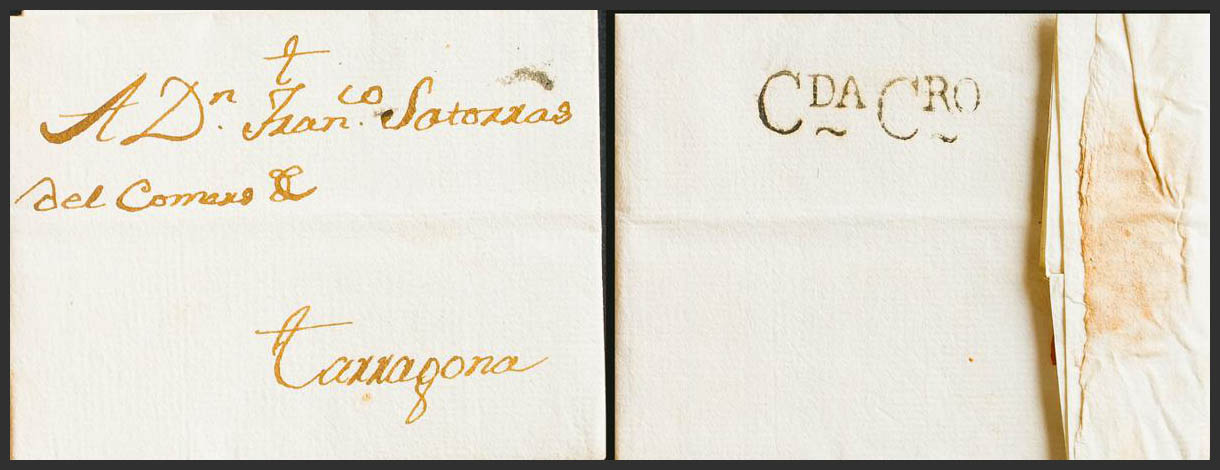 †
A Dn. Franco. Satorras
del Comerο &
Tarragona
CDA CRO